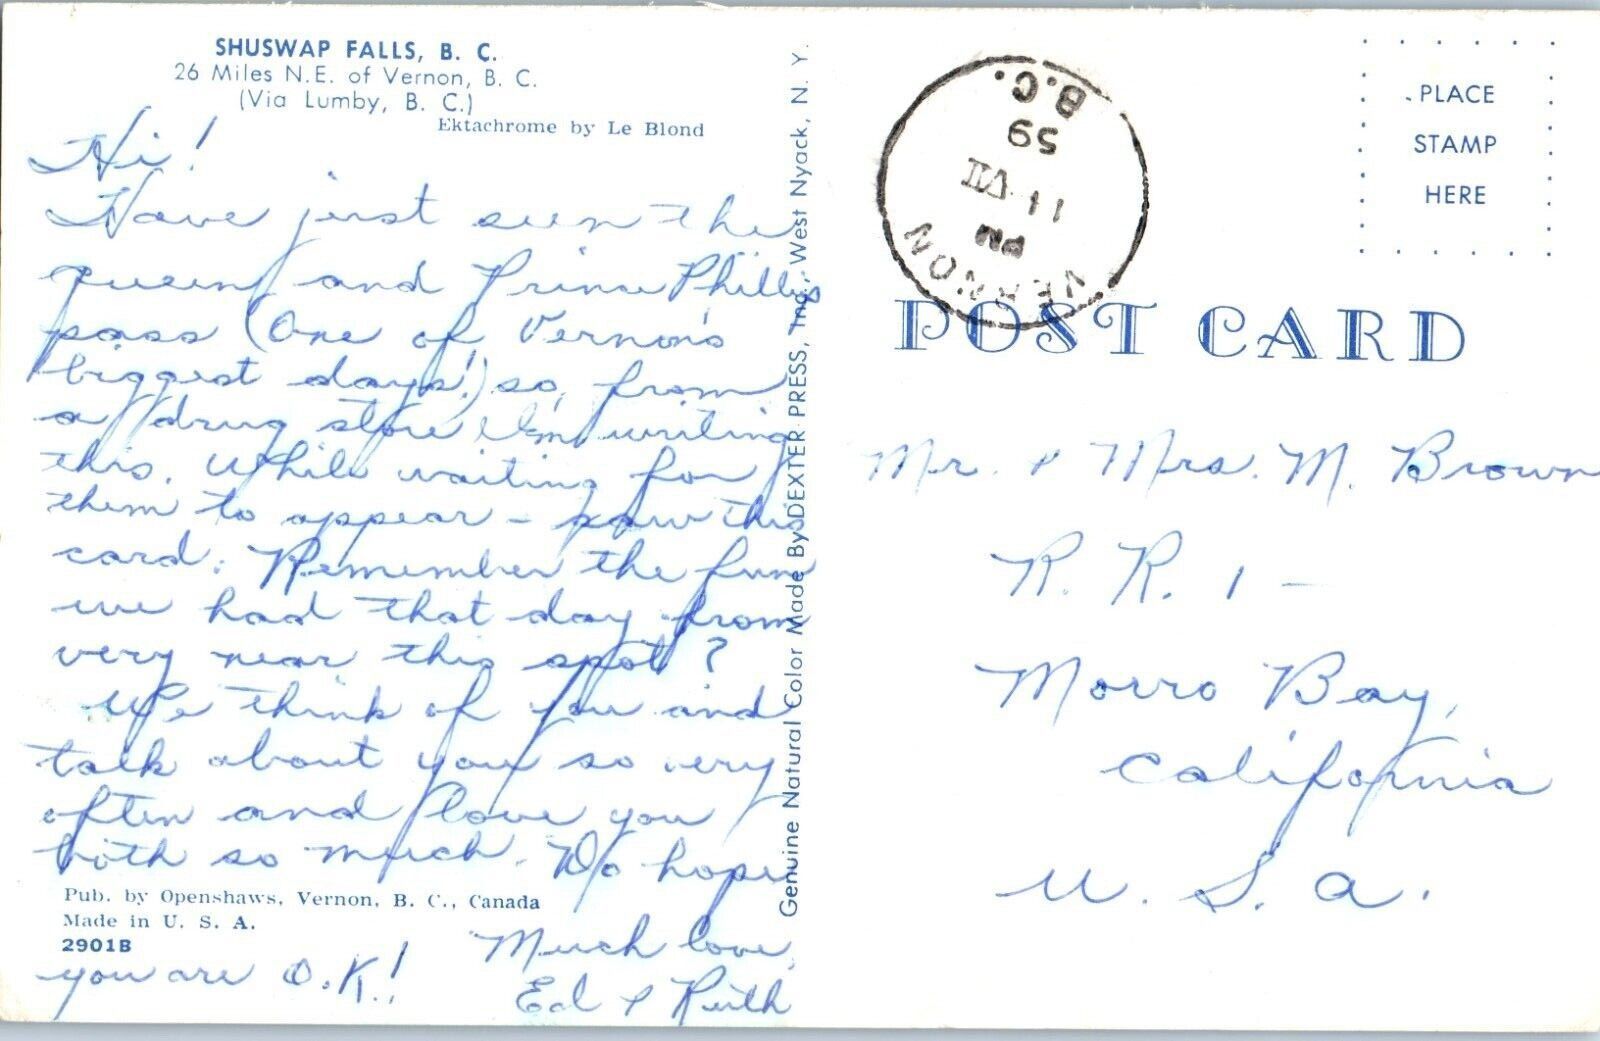 SHUSWAP FALLS, B. C.
26 Miles N.E. of Vernon, B. C.
(Via Lumby, B. C.)
Ektachrome by Le Blond
Hi!
Have just seen the
queen and Prince Phillip
pass (One of Vernon's
biggest days!) so, from
a drug store I'm writing
this. While waiting for
them to appear - saw this
card. Remember the fun
we had that day from
very near this spot?
We think of you and
talk about you so very
often and love you
both so much. Do hope
Pub. by Openshaws, Vernon, B. C., Canada
Made in U. S. A.
2901B
you are O.K.!
Much love,
Ed & Ruth
Genuine Natural Color Made By DEXTER PRESS, Inc., West Nyack, N. Y.
VERNON
PM
11 VII
59
B.C.
PLACE
STAMP
HERE
POST CARD
Mr. & Mrs. M. Brown
R. R. 1 -
Morro Bay,
California
U. S. A.